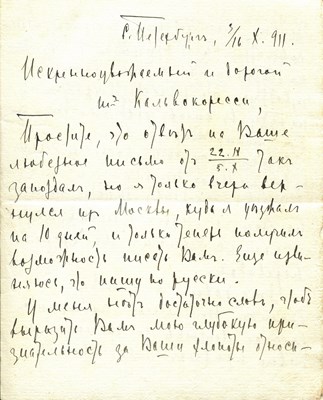 С. Петербургъ, 3/16 X. 911.
Искренноуважаемый и дорогой
m-r Кальвокоресси,
Простите, что отвѣтъ на Ваше
любезное письмо отъ 22.IX/5.X такъ
запоздалъ, но я только вчера вер-
нулся изъ Москвы, куда я уѣзжалъ
на 10 дней, и только теперь получилъ
возможность писать Вамъ. Еще изви-
няюсь, что пишу по русски.
У меня нѣтъ достаточно словъ, чтобъ
выразить Вамъ мою глубокую при-
знательность за Ваши хлопоты относи-